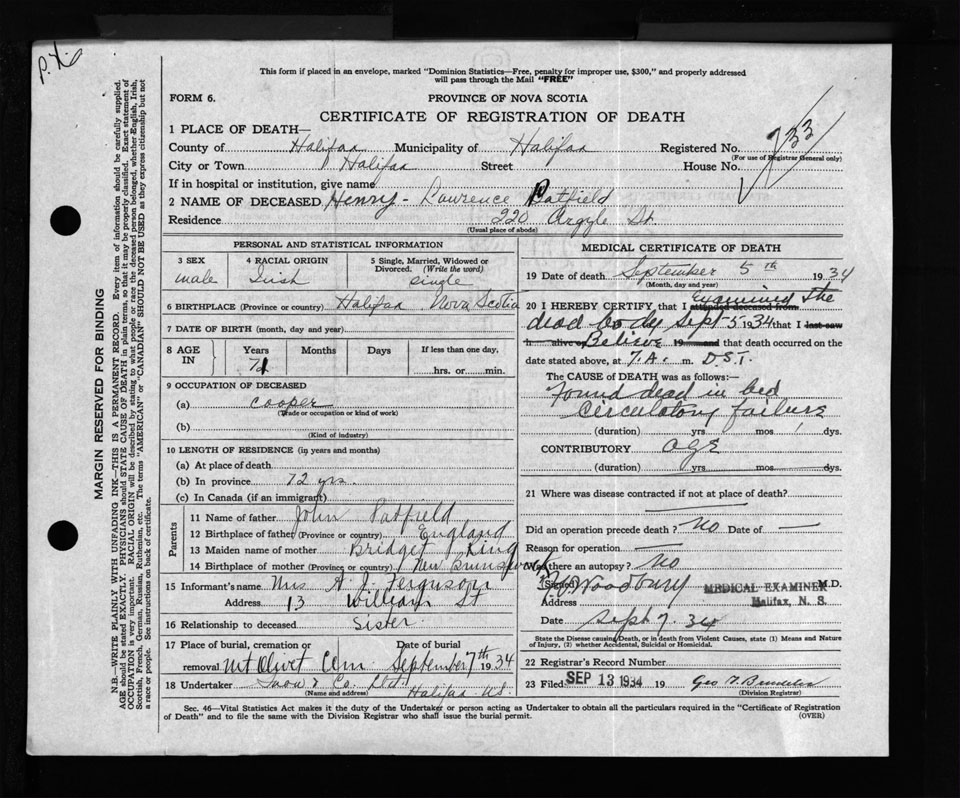 This form if placed in an envelope, marked "Dominion Statistics—Free, penalty for improper use, $300," and properly addressed
will pass through the Mail "FREE"
FORM 6.
PROVINCE OF NOVA SCOTIA
CERTIFICATE OF REGISTRATION OF DEATH
1 PLACE OF DEATH—
County of Halifax Municipality of Halifax Registered No. 733
(For use of Registrar General only)
City or Town Halifax Street House No.
If in hospital or institution, give name
2 NAME OF DECEASED Henry - Lawrence Patfield
Residence 220 Argyle St
(Usual place of abode)
PERSONAL AND STATISTICAL INFORMATION
3 SEX 4 RACIAL ORIGIN 5 Single, Married, Widowed or
Divorced. (Write the word)
male Irish single
6 BIRTHPLACE (Province or country) Halifax Nova Scotia
7 DATE OF BIRTH (month, day and year)
8 AGE IN Years Months Days If less than one day,
71 hrs. or min.
9 OCCUPATION OF DECEASED
(a) cooper
(Trade or occupation or kind of work)
(b)
(Kind of industry)
10 LENGTH OF RESIDENCE (in years and months)
(a) At place of death
(b) In province 72 yrs.
(c) In Canada (if an immigrant)
Parents
11 Name of father John Patfield
12 Birthplace of father (Province or country) England
13 Maiden name of mother Bridget King
14 Birthplace of mother (Province or country) New Brunswick
15 Informant's name Mrs A. J. Ferguson
Address 13 William St
16 Relationship to deceased Sister
17 Place of burial, cremation or Date of burial
removal Mt Olivet Cem September 7th 1934
18 Undertaker Snow & Co. Ltd. Halifax N.S.
(Name and address)
MEDICAL CERTIFICATE OF DEATH
19 Date of death September 5th 1934
(Month, day and year)
20 I HEREBY CERTIFY that I attended deceased from examined the
dead body Sept 5 1934 that I last saw
h alive on Believe 19 and that death occurred on the
date stated above, at 7.A. m. D.S.T.
The CAUSE of DEATH was as follows:—
Found dead in bed
Circulatory failure
(duration) yrs mos dys.
CONTRIBUTORY age
(duration) yrs mos dys.
21 Where was disease contracted if not at place of death?
Did an operation precede death? No Date of —
Reason for operation —
Was there an autopsy? No
(Signed) Woodbury MEDICAL EXAMINER M.D.
Address Halifax, N. S.
Date Sept 7. 34
State the Disease causing Death, or in death from Violent Causes, state (1) Means and Nature
of Injury, (2) whether Accidental, Suicidal or Homicidal.
22 Registrar's Record Number
23 Filed SEP 13 1934 19 Geo
(Division Registrar)
Sec. 46—Vital Statistics Act makes it the duty of the Undertaker or person acting as Undertaker to obtain all the particulars required in the "Certificate of Registration
of Death" and to file the same with the Division Registrar who shall issue the burial permit. (OVER)
MARGIN RESERVED FOR BINDING
N.B.—WRITE PLAINLY WITH UNFADING INK—THIS IS A PERMANENT RECORD. Every item of information should be carefully supplied.
AGE should be stated EXACTLY. PHYSICIANS should STATE CAUSE OF DEATH in plain terms, so that it may be properly classified. Exact statement of
OCCUPATION is very important. RACIAL ORIGIN will be described by stating to what people or race the deceased person belonged, whether English, Irish,
Scottish, French, German, Russian, Ruthenian, etc. The terms "AMERICAN" or "CANADIAN" SHOULD NOT BE USED as they express citizenship but not
a race or people. See instructions on back of certificate.